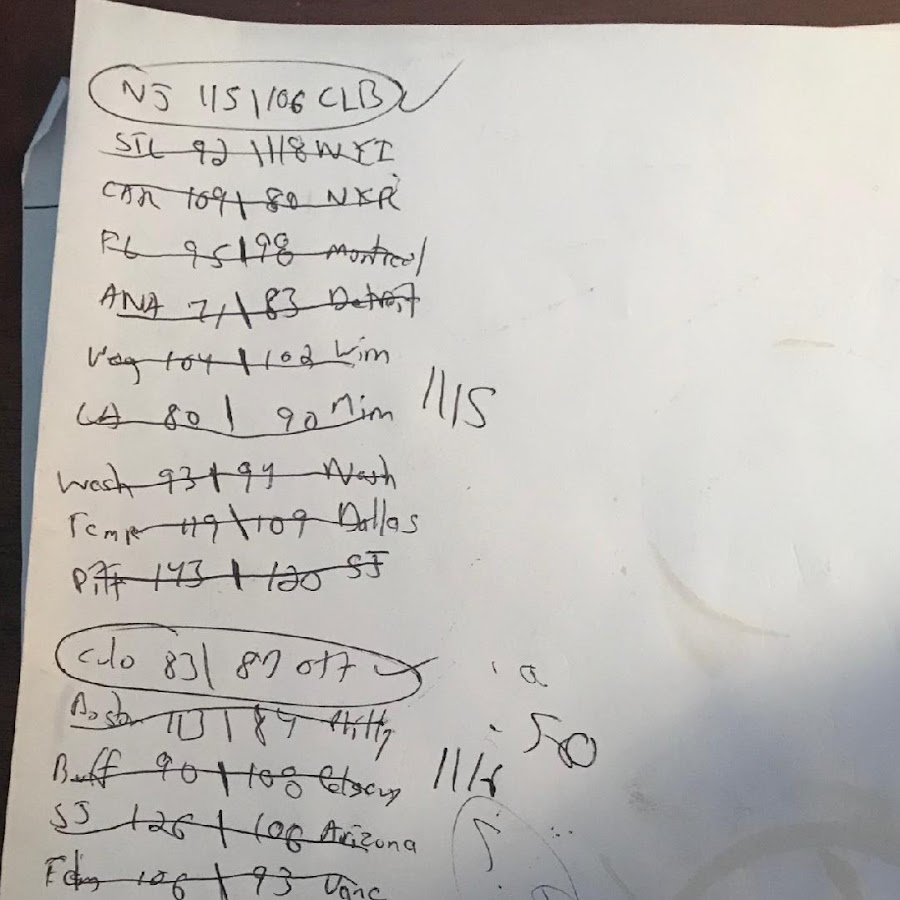 NJ 115 | 106 CLB
STL 92 | 118 NYI
CAR 109 | 80 NYR
FL 95 | 98 Montreal
ANA 71 | 83 Detroit
Veg 104 | 102 Wim
LA 80 | 90 Min
11/15
Wash 93 | 94 Nash
Temp 119 | 109 Dallas
Pitt 143 | 120 SJ
Colo 83 | 87 OTT
a
Bosto 113 | 84 Philly
50
Buff 90 | 108 Calgary
11/16
SJ 126 | 106 Arizona
Edm 106 | 93 Vanc